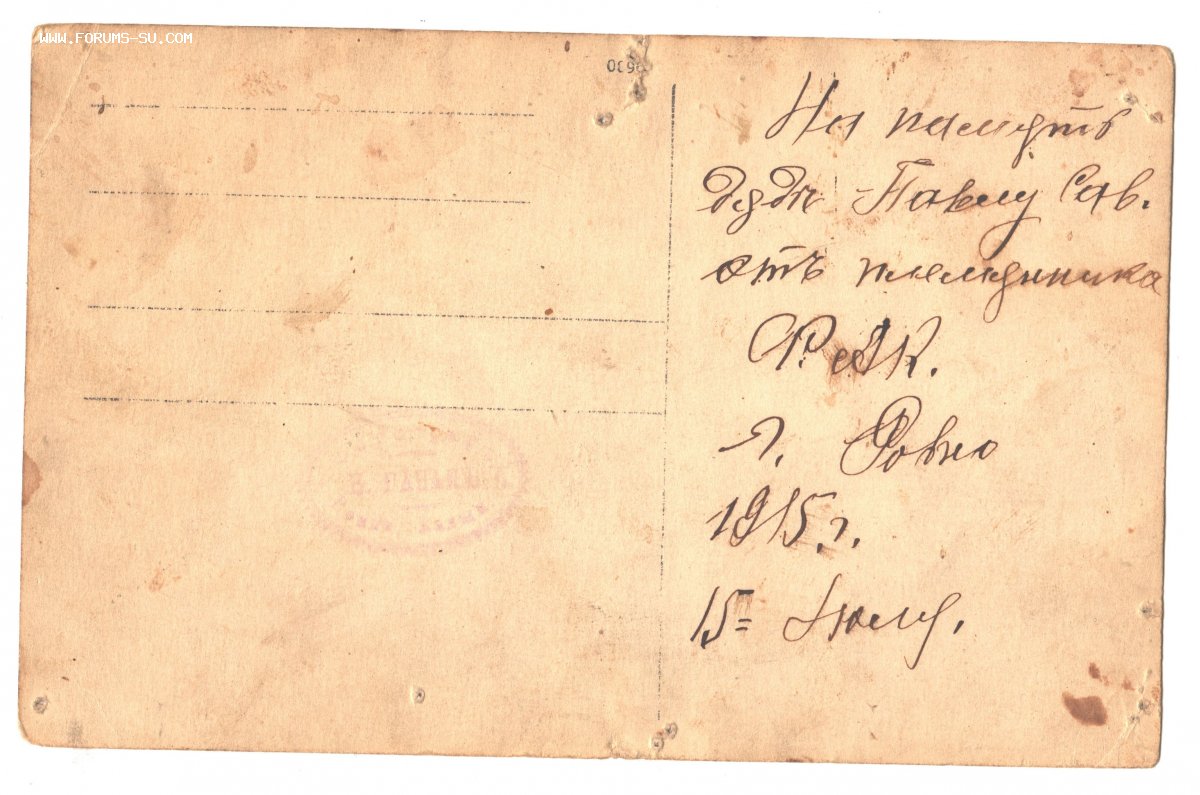 WWW.FORUMS-SU.COM
На память
дядѣ Павлу Сав.
отъ племянника
г. Ровно
1915 г.
15 Июля.